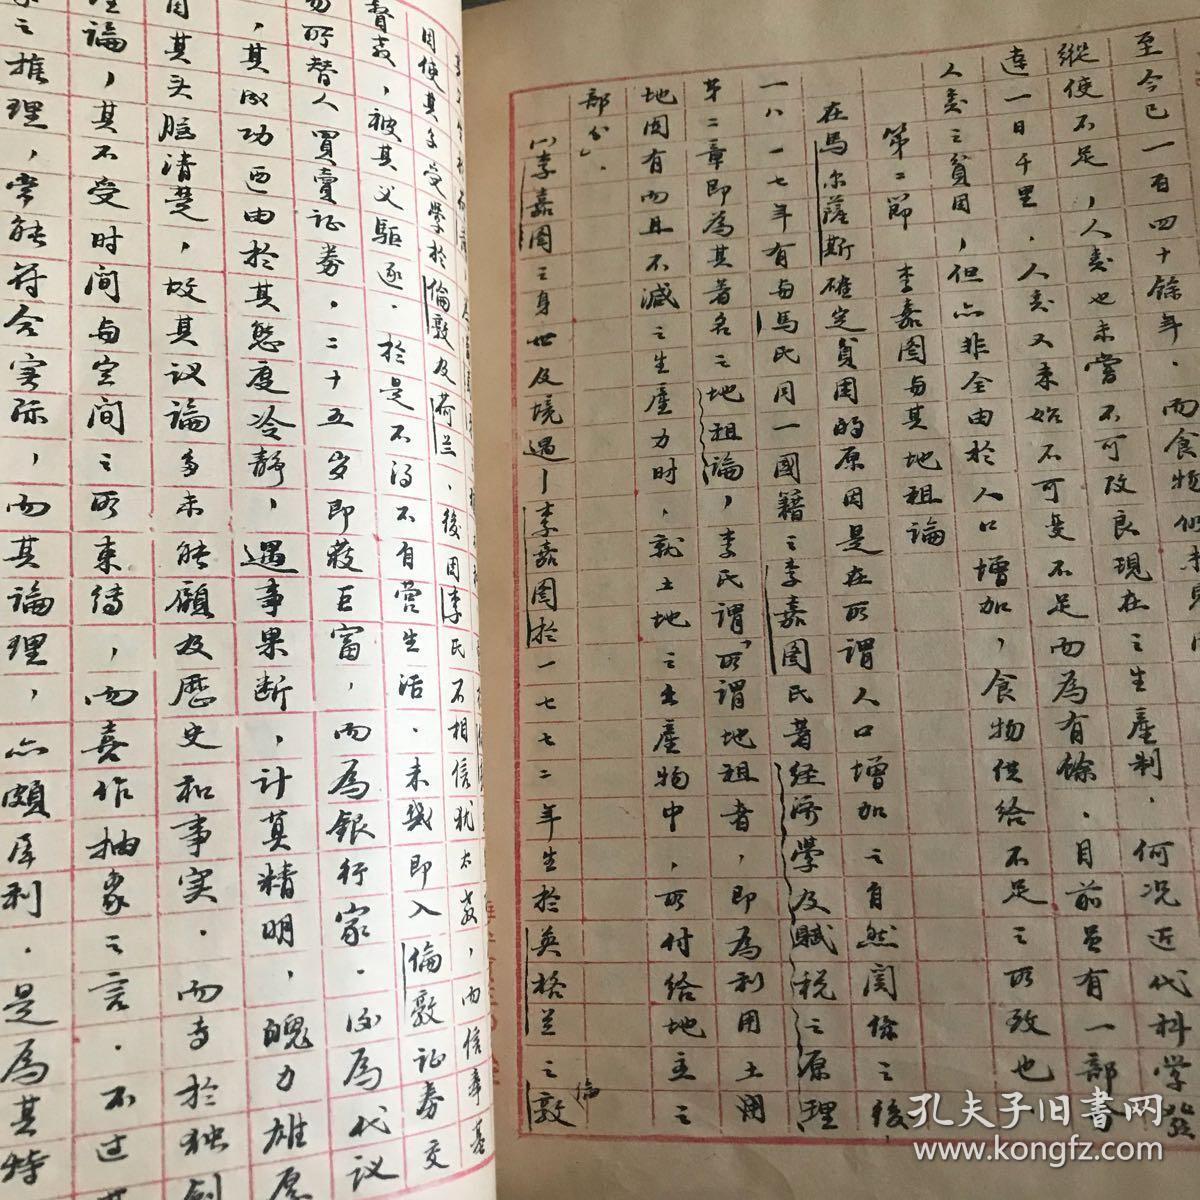 至今已一百四十餘年．而食物
縱使不足，人类也未嘗不可改良現在之生產制．何況近代科学發
達一日千里．人类又未始不可变不足而為有餘．目前虽有一部分
人类之貧困，但亦非全由於人口增加，食物供给不足之所致也
第二節　李嘉圖与其地租論
在馬尔薩斯確定貧困的原因是在所谓人口增加之自然関係之後
一八一七年有与馬氏同一國籍之李嘉图氏著经济學及賦税之原理
第二章即為其著名之地租論，李氏谓「所谓地租者，即為利用土
地固有而且不減之生產力时．就土地之生產物中，所付给地主之
部分」．
(一)李嘉图之身世及境遇—李嘉图於一七七二年生於英格兰之倫敦
因使其子受學於倫敦及荷兰．後因李氏不相信犹太教，内信奉基
督教，被其父驱逐．於是不得不自营生活．未幾即入倫敦证券交
易所替人買賣证券．二十五岁即获巨富，而為銀行家．後為代议
，其成功迺由於其態度冷静，遇事果断，计算精明，魄力雄厚
因其头脑清楚，故其议論多未能顾及歷史和事实．而专於独创
理論，其不受时间与空间之所束缚，而喜作抽象之言．不过
之推理，常能符合实际，而其論理，亦頗犀利．是為其特
孔夫子旧書网
www.kongfz.com